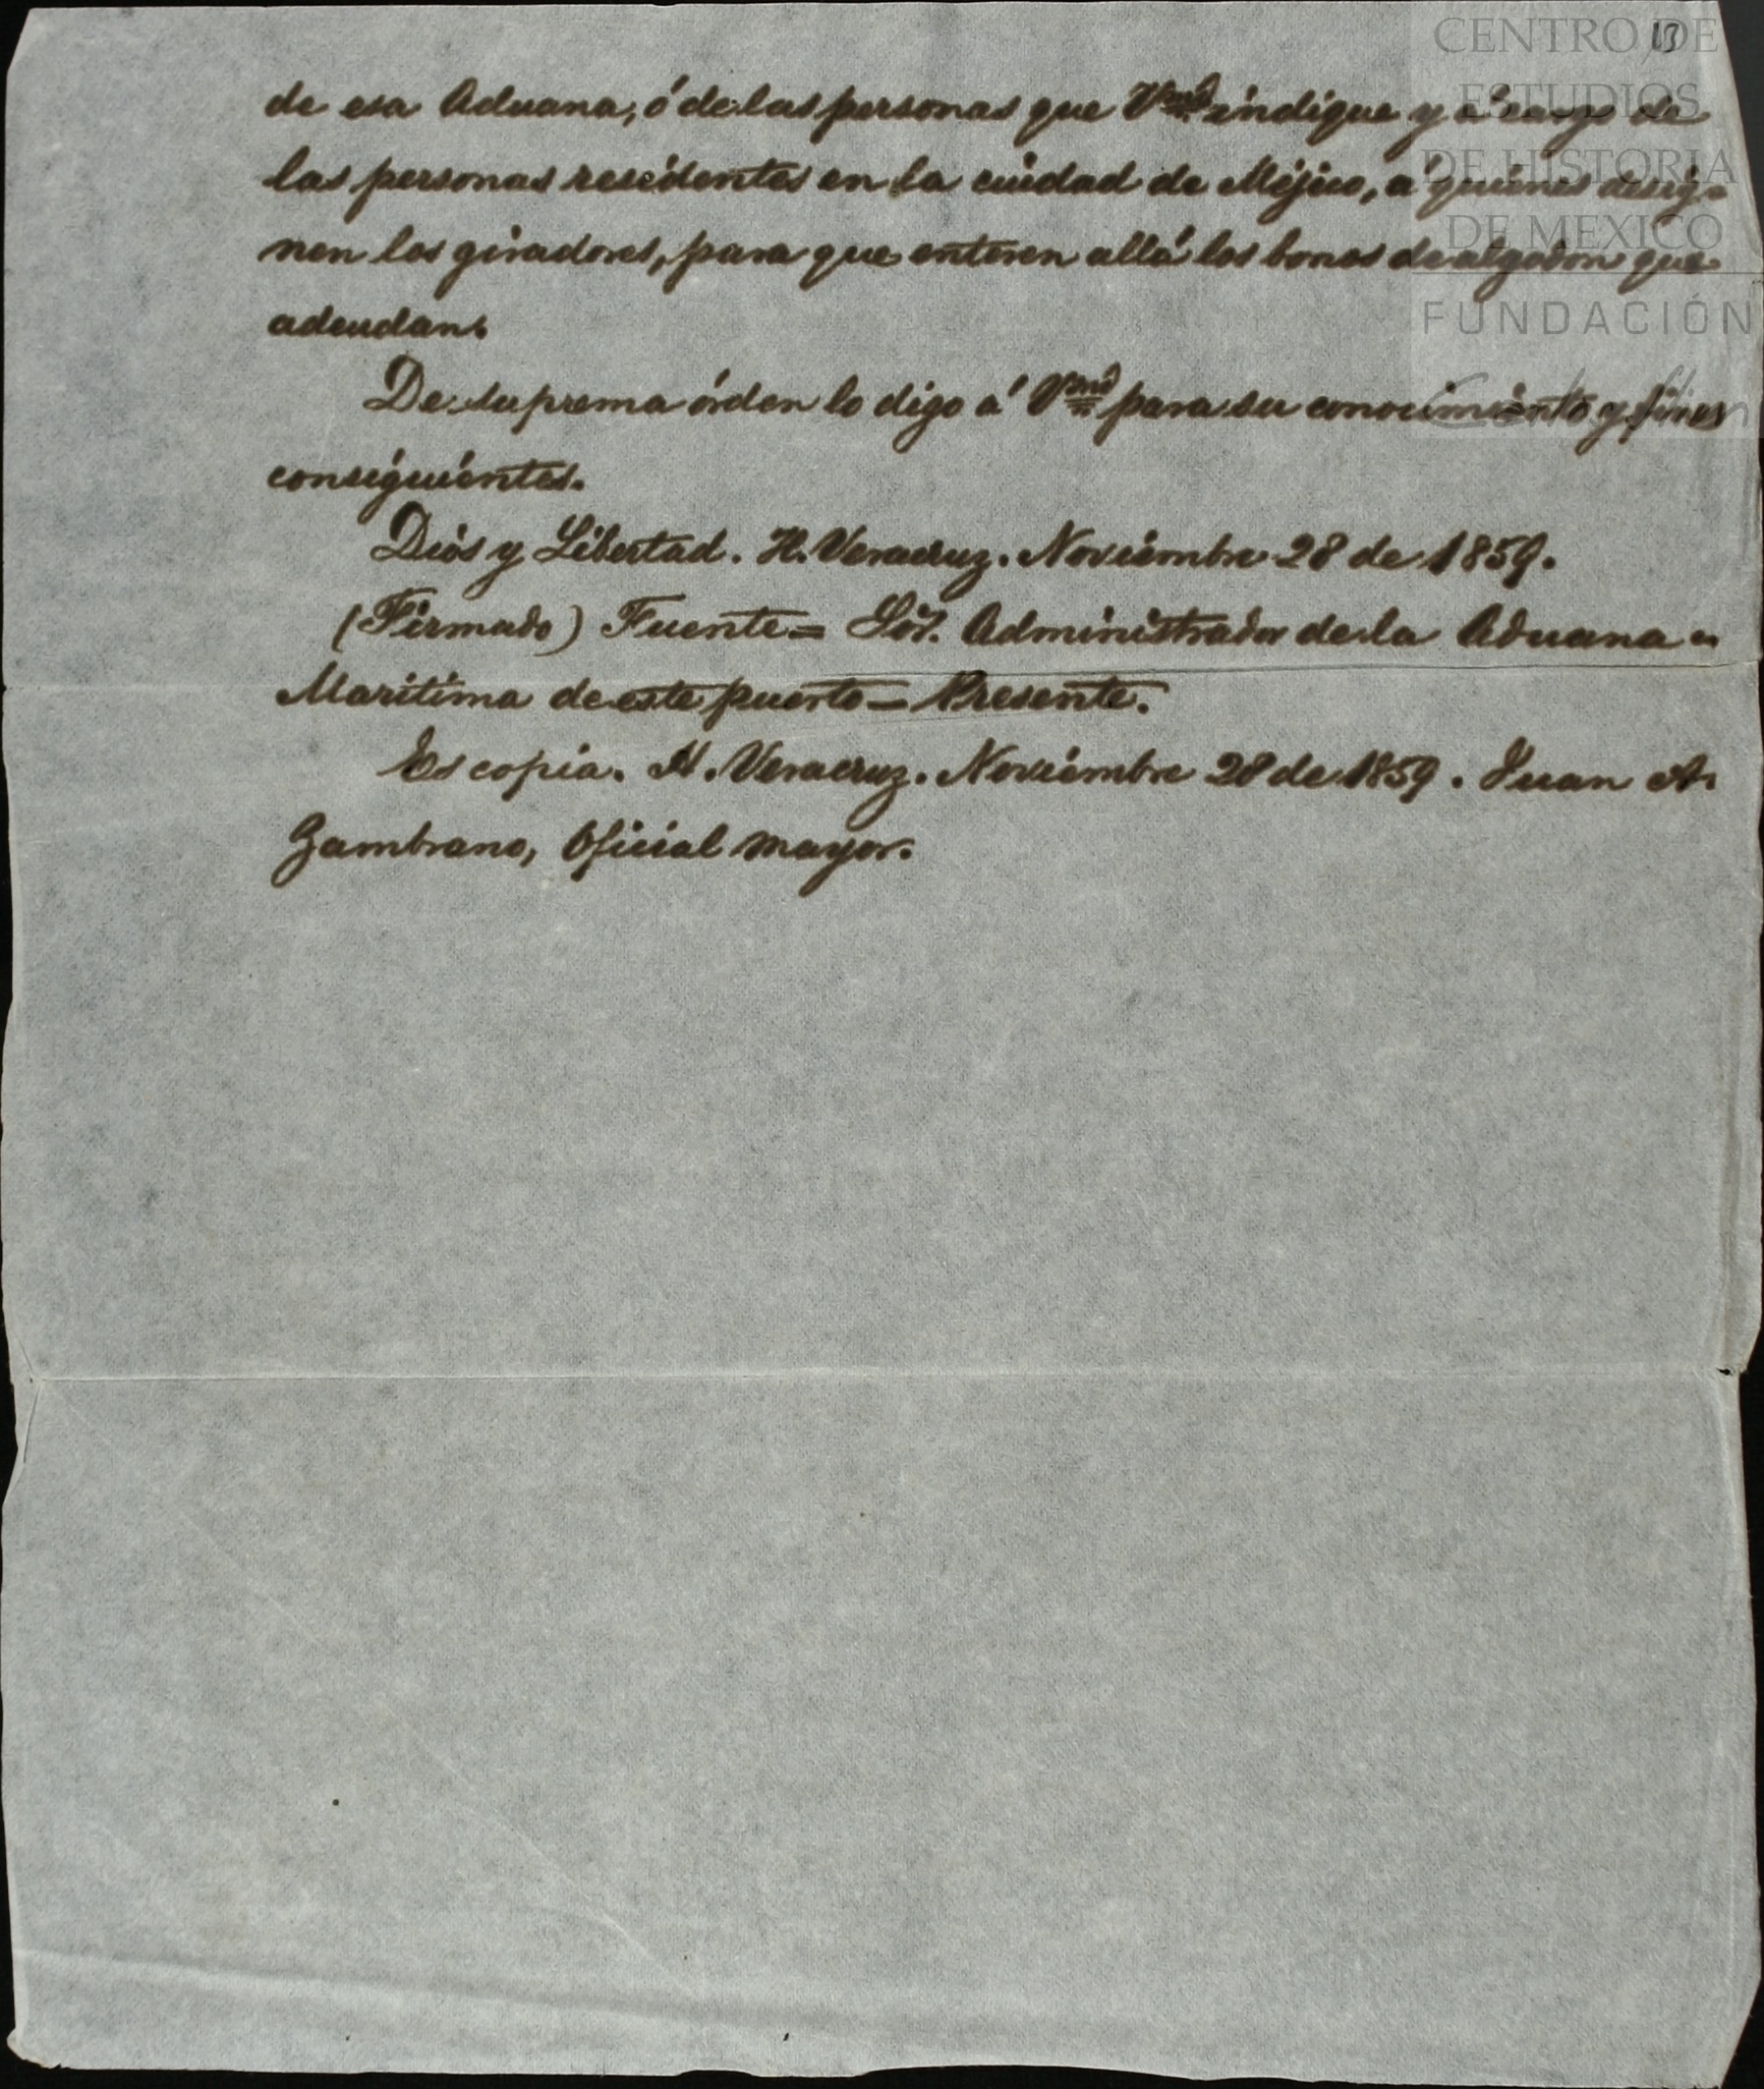 13
CENTRO DE
ESTUDIOS
DE HISTORIA
DE MEXICO
FUNDACIÓN
de esa Aduana, ó de las personas que Vmd indique y á cargo de
las personas residentes en la ciudad de Méjico, á quienes desig-
nen los giradores, para que enteren allá los bonos de algodon que
adeudan.
De suprema órden lo digo á Vmd para su conocimiento y fines
consiguientes.
Dios y Libertad. H. Veracruz. Noviembre 28 de 1859.
(Firmado) Fuente = Sór. Administrador de la Aduana =
Maritima de este puerto = Presente.
Es copia. H. Veracruz. Noviembre 28 de 1859. Juan A.
Zambrano, Oficial mayor.